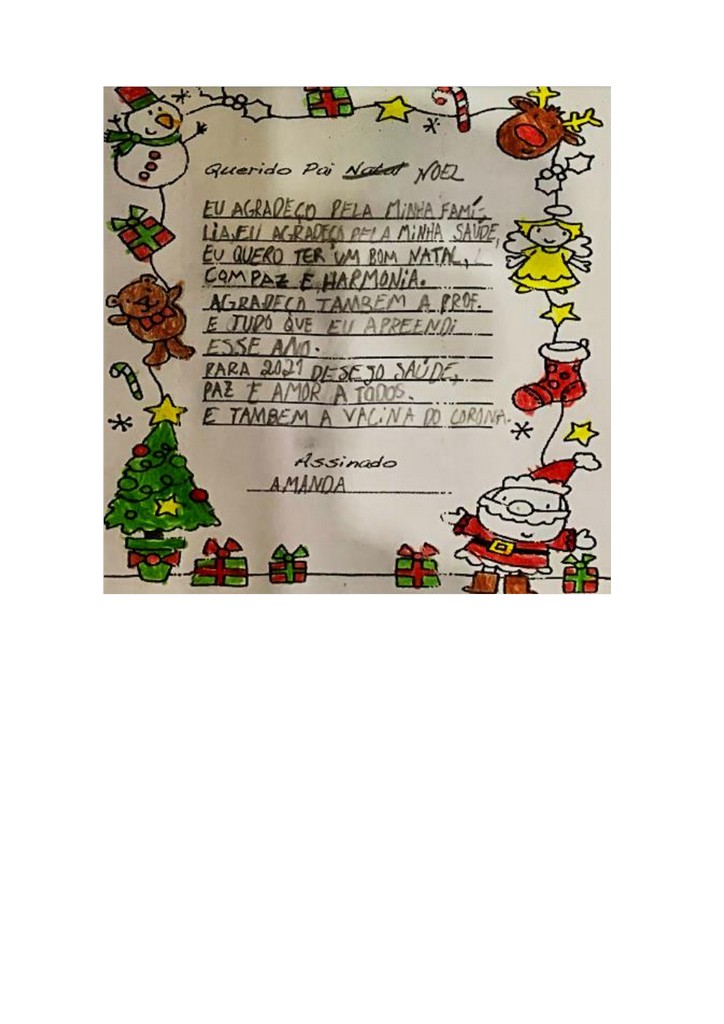 Querido Pai Natal NOEL
EU AGRADEÇO PELA MINHA FAMÍ-
LIA.EU AGRADEÇO PELA MINHA SAÚDE,
EU QUERO TER UM BOM NATAL,
COM PAZ E HARMONIA.
AGRADEÇO TAMBEM A PROF.
E TUDO QUE EU APREENDI
ESSE ANO.
PARA 2021 DESEJO SAÚDE,
PAZ E AMOR A TODOS.
E TAMBEM A VACINA DO CORONA.
Assinado
AMANDA